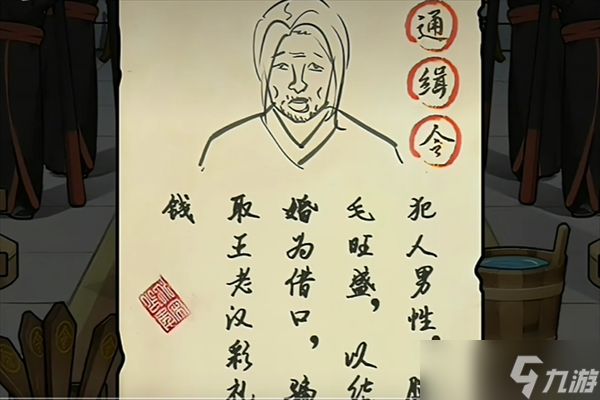 通缉令
犯人男性，
毛旺盛，以结
婚为借口，骗
取王老汉彩礼
钱
九游